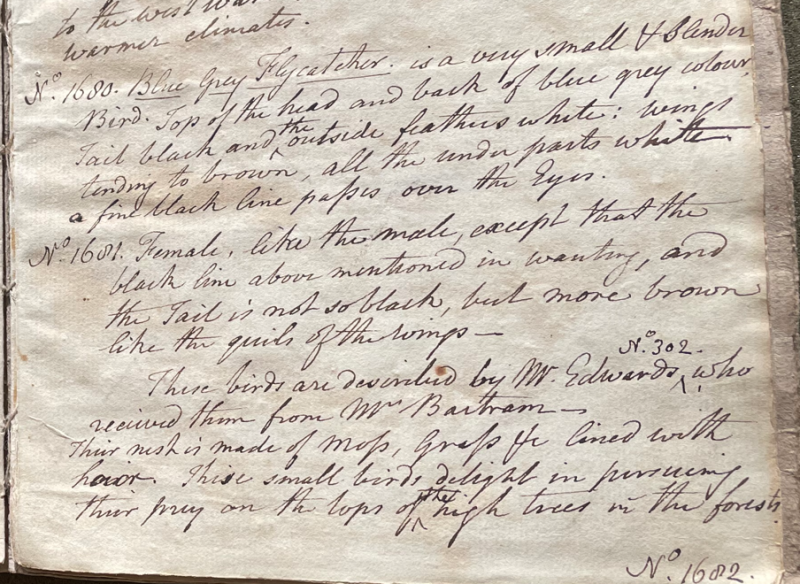 to the west
warmer climates.
No. 1680. Blue Grey Flycatcher. is a very small & slender
Bird. Top of the head and back of blue grey colour,
Tail black and the outside feathers white: wings
tending to brown, all the under parts white
a fine black line passes over the Eyes.
No. 1681. Female, like the male, except that the
black line above mentioned in wanting, and
the Tail is not so black, but more brown
like the quils of the wings —
No. 302.
These birds are described by Mr. Edwards, who
received them from Mr Bartram —
Their nest is made of Moss, Grass &c lined with
hair. These small birds delight in pursuing
their prey on the tops of the high trees in the forests
No. 1682.